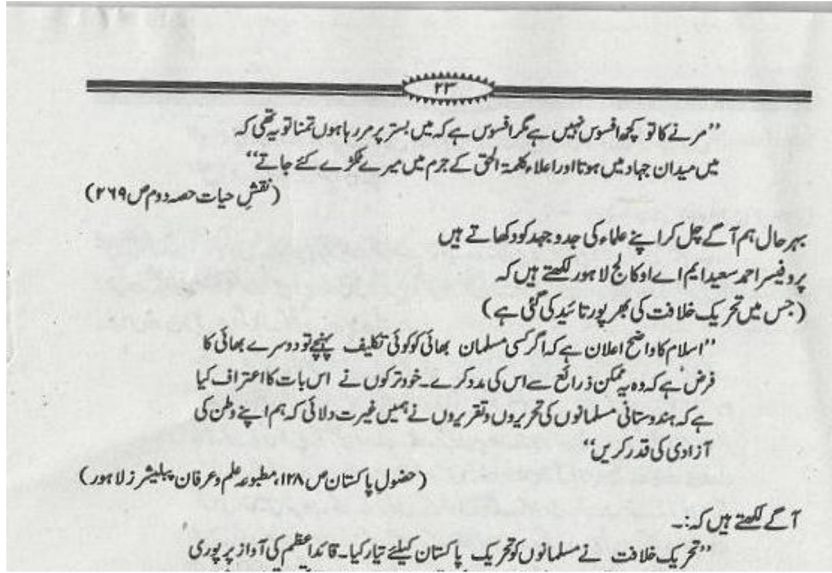 ۲۳
’’مرنے کا تو کچھ افسوس نہیں ہے مگر افسوس ہے کہ میں بستر پر مر رہا ہوں تمنا تو یہ تھی کہ
میں میدان جہاد میں ہوتا اور اعلاء کلمۃ الحق کے جرم میں میرے ٹکڑے کئے جاتے‘‘
(نقشِ حیات حصہ دوم ص ۲۶۹)
بہرحال ہم آگے چل کر اپنے علماء کی جدوجہد کو دکھاتے ہیں
پروفیسر احمد سعید ایم اے او کالج لاہور لکھتے ہیں کہ
(جس میں تحریک خلافت کی بھرپور تائید کی گئی ہے)
’’اسلام کا واضح اعلان ہے کہ اگر کسی مسلمان بھائی کو کوئی تکلیف پہنچے تو دوسرے بھائی کا
فرض ہے کہ وہ یہ ممکن ذرائع سے اس کی مدد کرے۔ خود ترکوں نے اس بات کا اعتراف کیا
ہے کہ ہندوستانی مسلمانوں کی تحریروں و تقریروں نے ہمیں غیرت دلائی کہ ہم اپنے وطن کی
آزادی کی قدر کریں‘‘
(حضولِ پاکستان ص ۱۲۸، مطبوعہ علم و عرفان پبلیشرز لاہور)
آگے لکھتے ہیں کہ:۔
’’تحریک خلافت نے مسلمانوں کو تحریک پاکستان کیلئے تیار کیا۔ قائداعظم کی آواز پر پوری